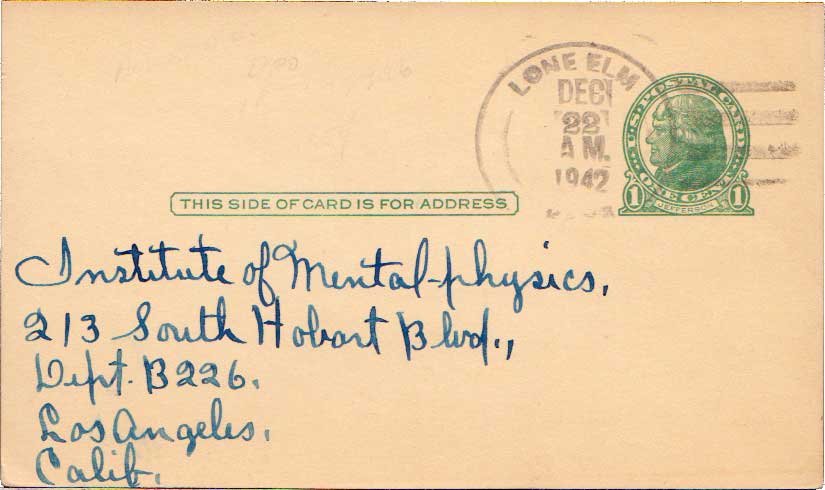 LONE ELM
DEC
22
A M.
1942
U.S. POSTAL CARD
ONE CENT
1 JEFFERSON 1
THIS SIDE OF CARD IS FOR ADDRESS
Institute of Mental-physics,
213 South Hobart Blvd.,
Dept. B226.
Los Angeles,
Calif.